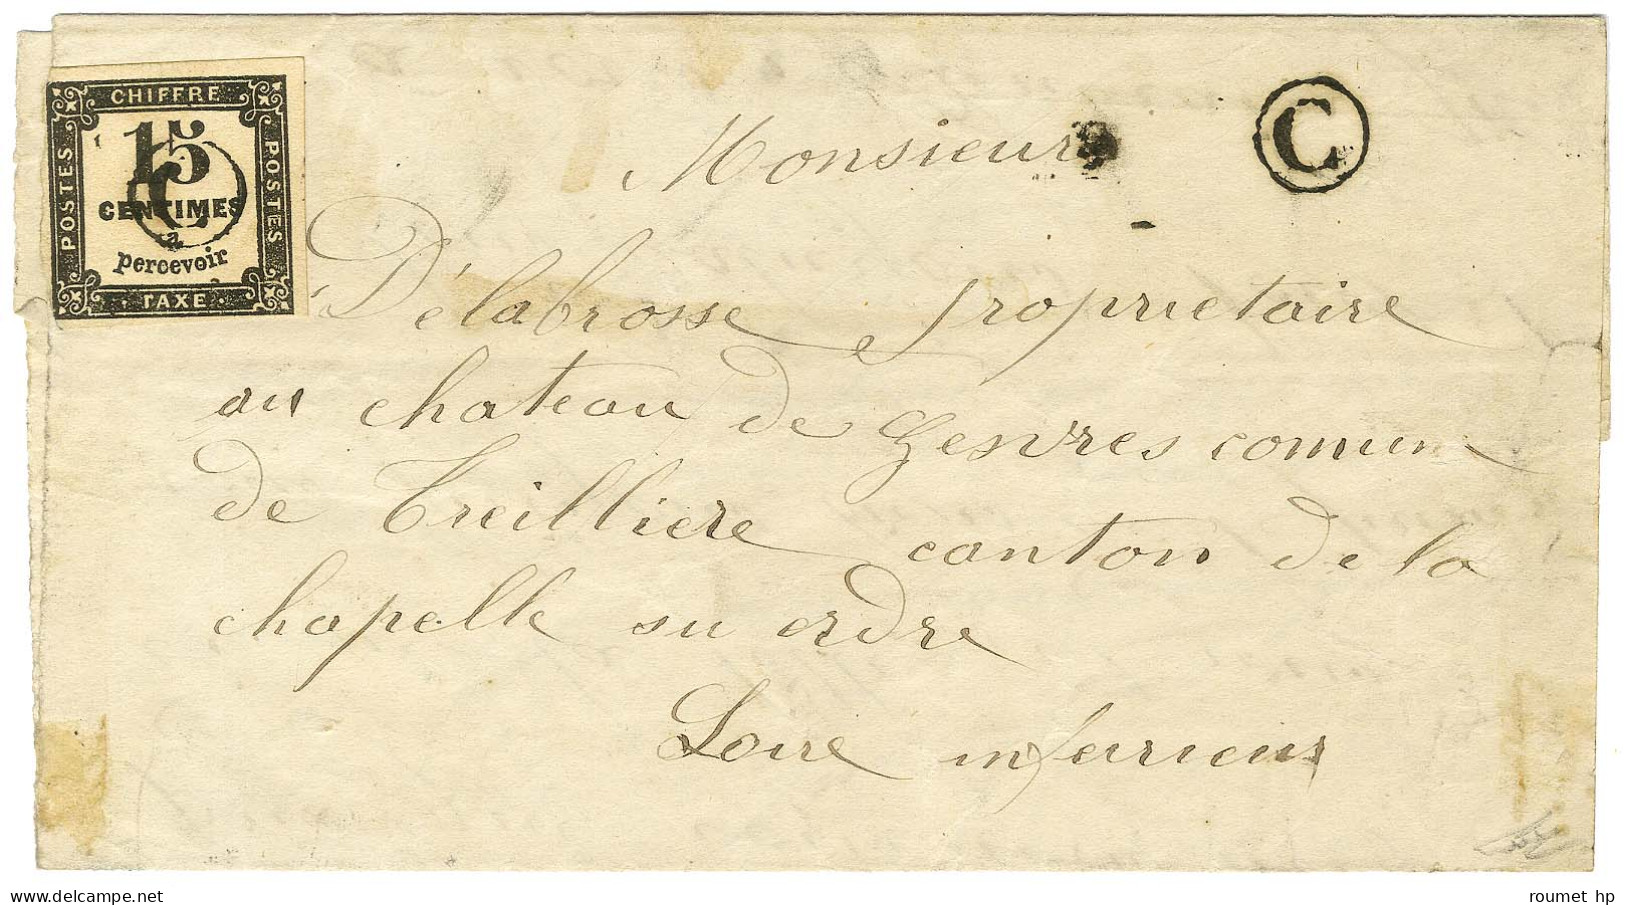 CHIFFRE
POSTES
POSTES
15
CENTIMES
à
percevoir
TAXE
C
C
Monsieur
Délabrosse propriétaire
au chateau de Gesvres comune
de Treilliere canton de la
chapelle su erdre
Loire inferieur
roumet hp